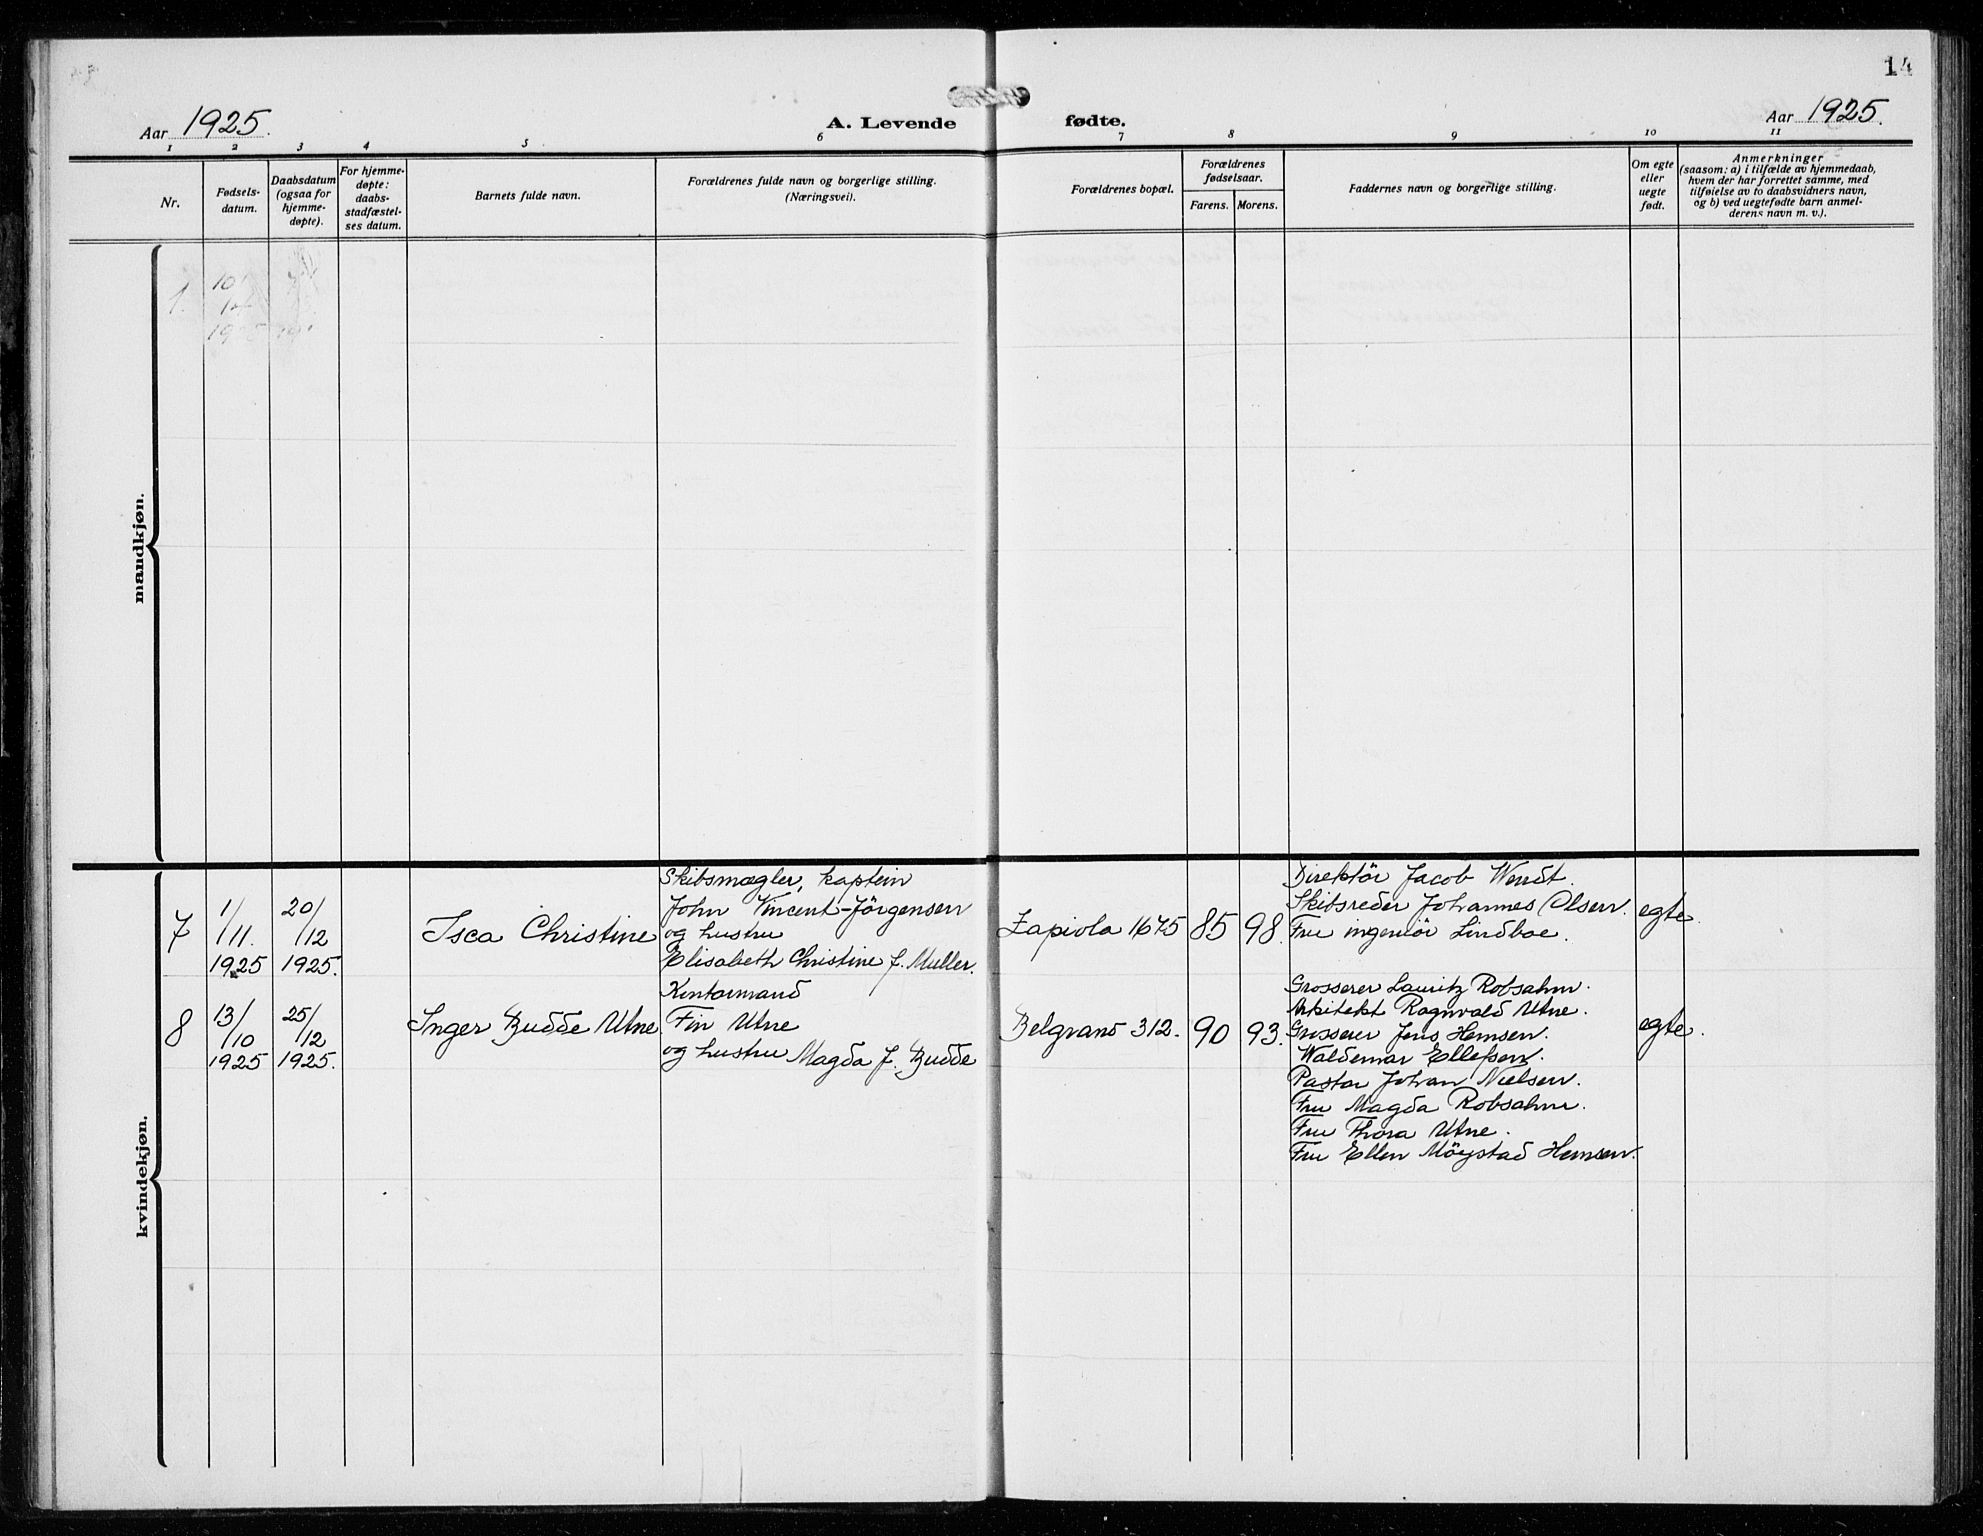 14
Aar 1925.
A. Levende fødte.
Aar 1925.
1 2 3 4 5 6 7 8 9 10 11
Nr.
Fødsels-
datum.
Daabsdatum
(ogsaa for
hjemme-
døpte).
For hjemme-
døpte:
daabs-
stadfæstel-
ses datum.
Barnets fulde navn.
Forældrenes fulde navn og borgerlige stilling.
(Næringsvei).
Forældrenes bopæl.
Forældrenes
fødselsaar.
Farens. Morens.
Faddernes navn og borgerlige stilling.
Om egte
eller
uegte
født.
Anmerkninger
(saasom: a) i tilfælde av hjemmedaab,
hvem der har forrettet samme, med
tilføielse av to daabsvidners navn,
og b) ved uegtefødte barn anmel-
derens navn m. v.).
mandkjøn.
1.
10
1925
kvindekjøn.
7
1/
/11.
1925
20/
/12
1925.
Isca Christine
Skibsmægler, kaptein
John Vincent-Jörgensen
og hustru
Elisabeth Christine f. Muller.
Zapiola 1675
85
98.
Direktör Jacob Wendt.
Skibsreder Johannes Olsen.
Fru ingeniör Lindboe.
egte.
8
13/
/10
1925
25/
/12
1925.
Inger Budde Utne
Kontormand
Fin Utne
og hustru Magda f. Budde
Belgrano 312.
90
93.
Grosserer Lauritz Robsahm.
Arkitekt Ragnvald Utne.
Grosserer Jens Hemsen.
Waldemar Ellefsen.
Pastor Johan Nielsen.
Fru Magda Robsahm.
Fru Thora Utne.
Fru Ellen Möystad Hemsen.
egte.